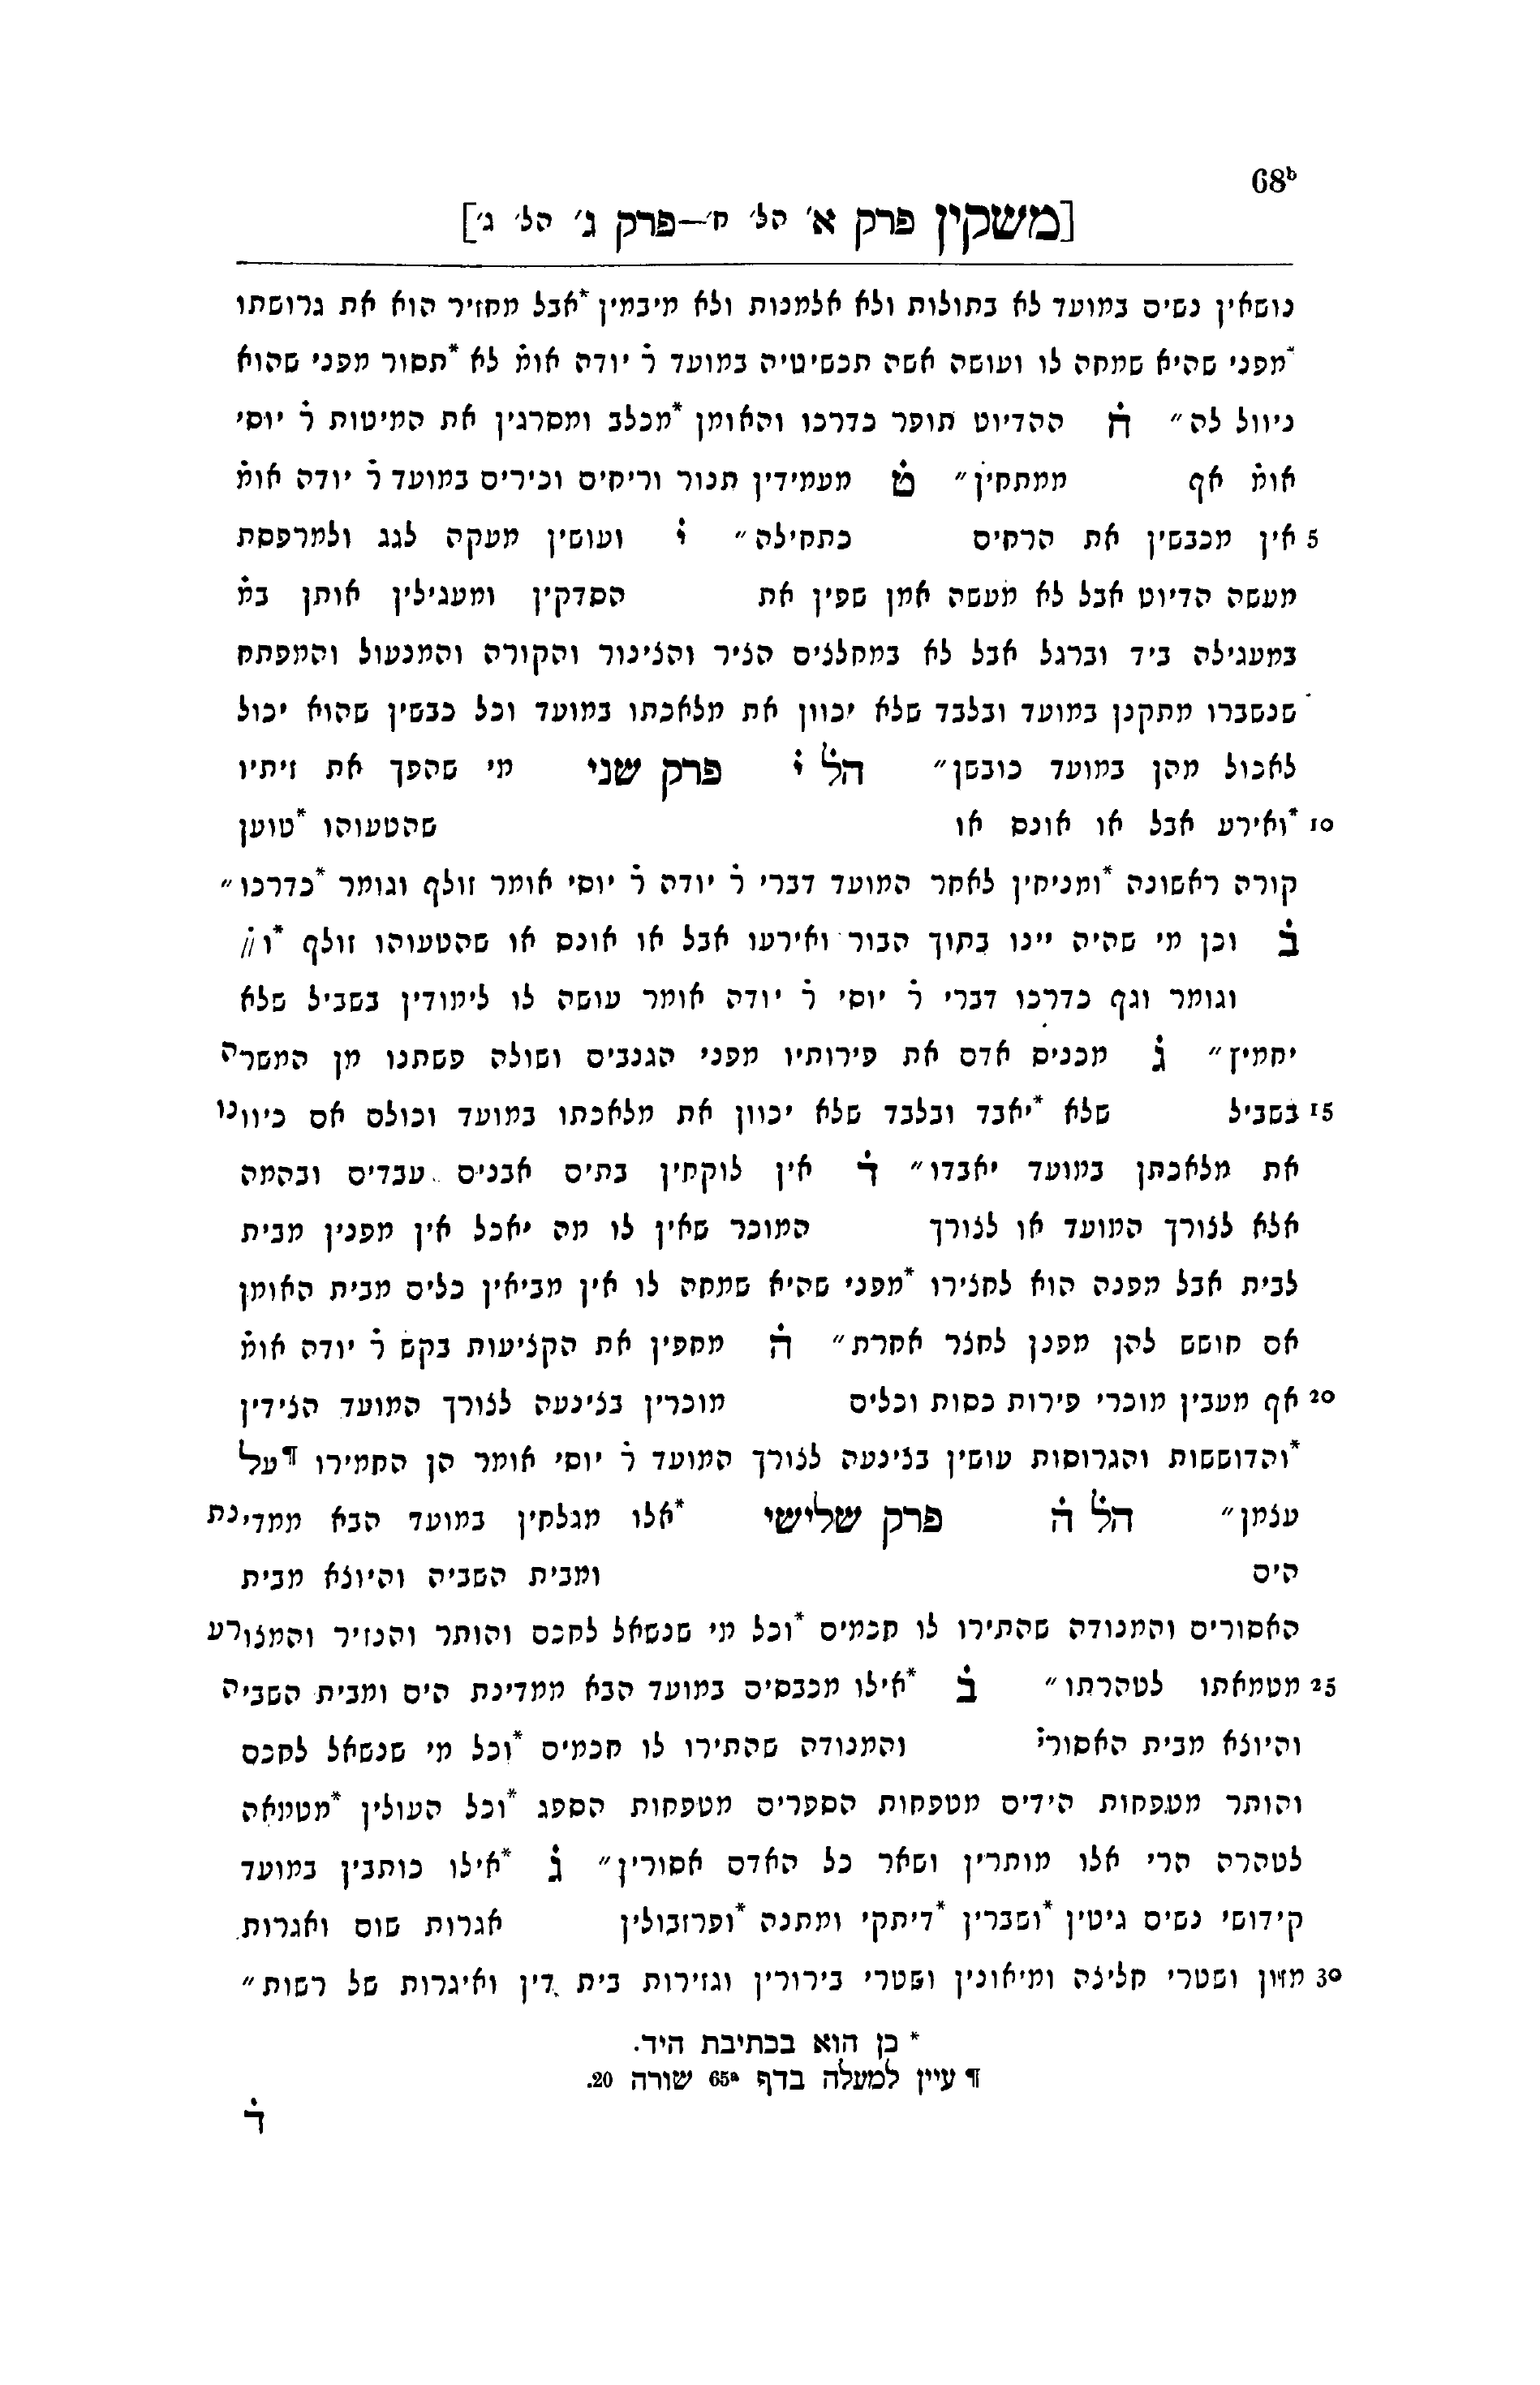 68ᵇ
[משקין פרק א׳ הל׳ ח׳—פרק ג׳ הל׳ ג׳]
נושאין נשים במועד לא בתולות ולא אלמנות ולא מיבמין *אבל מחזיר הוא את גרושתו
*מפני שהיא שמחה לו ועושה אשה תכשיטיה במועד ר̇ יודה אומ̇ לא *תסור מפני שהוא
ניוול לה״ ח̇ ההדיוט תופר כדרכו והאומן *מכלב ומסרגין את המיטות ר̇ יוסי
אומ̇ אף ממתחין״ ט̇ מעמידין תנור וריחים וכירים במועד ר̇ יודה אומ̇
5 אין מכבשין את הרחים כתחילה״ י̇ ועושין מעקה לגג ולמרפסת
מעשה הדיוט אבל לא מעשה אמן שפין את הסדקין ומעגילין אותן במ̇
במעגילה ביד וברגל אבל לא במחלצים הציר והצינור והקורה והמנעול והמפתח
שנשברו מתקנן במועד ובלבד שלא יכוון את מלאכתו במועד וכל כבשין שהוא יכול
לאכול מהן במועד כובשן״ הל̇ י̇ פרק שני מי שהפך את זיתיו
10 *ואירע אבל או אונס או שהטעוהו *טוען
קורה ראשונה *ומניחין לאחר המועד דברי ר̇ יודה ר̇ יוסי אומר זולף וגומר *כדרכו״
ב̇ וכן מי שהיה יינו בתוך הבור ואירעו אבל או אונס או שהטעוהו זולף *ו //
וגומר וגף כדרכו דברי ר̇ יוסי ר̇ יודה אומר עושה לו לימודין בשביל שלא
יחמיץ״ ג̇ מכניס אדם את פירותיו מפני הגנבים ושולה פשתנו מן המשרה
15 בשביל שלא *יאבד ובלבד שלא יכוון את מלאכתו במועד וכולם אם כיוונו
את מלאכתן במועד יאבדו״ ד̇ אין לוקחין בתים אבנים עבדים ובהמה
אלא לצורך המועד או לצורך המוכר שאין לו מה יאכל אין מפנין מבית
לבית אבל מפנה הוא לחצירו *מפני שהיא שמחה לו אין מביאין כלים מבית האומן
אם חושש להן מפנן לחצר אחרת״ ה̇ מחפין את הקציעות בקש ר̇ יודה אומ̇
20 אף מעבין מוכרי פירות כסות וכלים מוכרין בצינעה לצורך המועד הצידין
*והדוששות והגרוסות עושין בצינעה לצורך המועד ר̇ יוסי אומר הן החמירו ¶על
עצמן״ הל̇ ה̇ פרק שלישי *אלו מגלחין במועד הבא ממדינת
הים ומבית השביה והיוצא מבית
האסורים והמנודה שהתירו לו חכמים *וכל מי שנשאל לחכם והותר והנזיר והמצורע
25 מטמאתו לטהרתו״ ב̇ *אילו מכבסים במועד הבא ממדינת הים ומבית השביה
והיוצא מבית האסורי̇ והמנודה שהתירו לו חכמים *וכל מי שנשאל לחכם
והותר מטפחות הידים מטפחות הספרים מטפחות הספג *וכל העולין *מטמאה
לטהרה הרי אלו מותרין ושאר כל האדם אסורין״ ג̇ *אילו כותבין במועד
קידושי נשים גיטין *ושברין *דיתקי ומתנה *ופרזבולין אגרות שום ואגרות
30 מזון ושטרי חליצה ומיאונין ושטרי בירורין וגזירות בית דין ואיגרות של רשות״
* כן הוא בכתיבת היד.
¶ עיין למעלה בדף 65ᵃ שורה 20.
ד̇